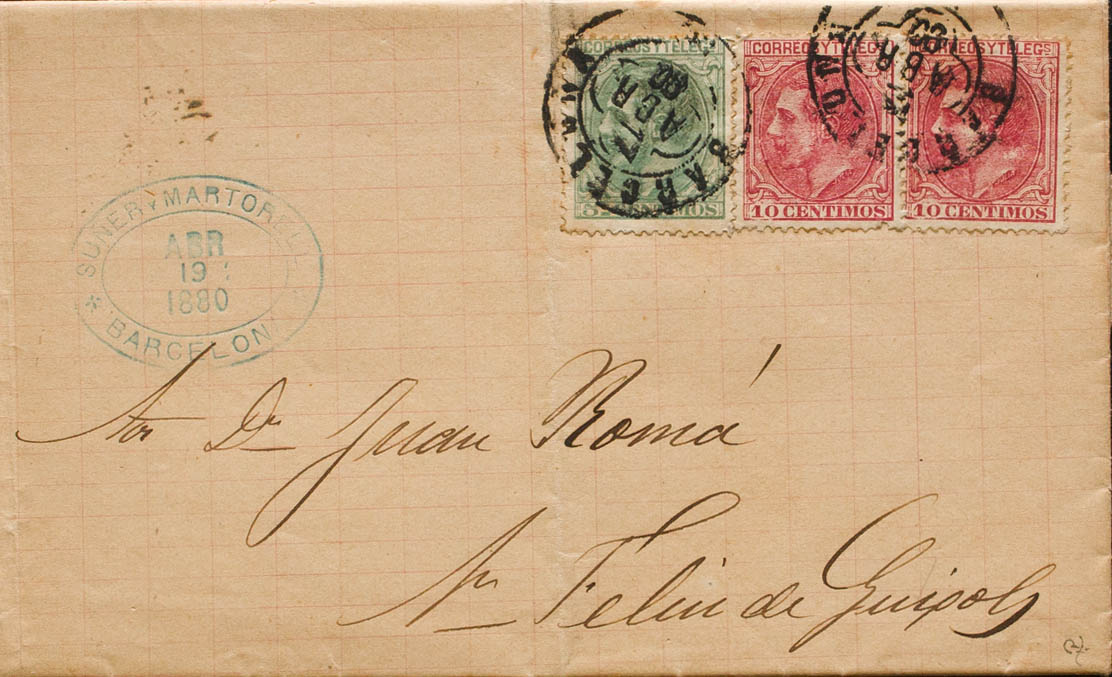 CORREOS Y TELEGS
CORREOS Y TELEGS
CORREOS Y TELEGS
10 CENTIMOS
10 CENTIMOS
CENTIMOS
BARCELONA
ABR
80
ABR
SUÑER Y MARTORELL
ABR
19
1880
* BARCELONA
Sor Dn Juan Romá
Sn Feliu de Guixols